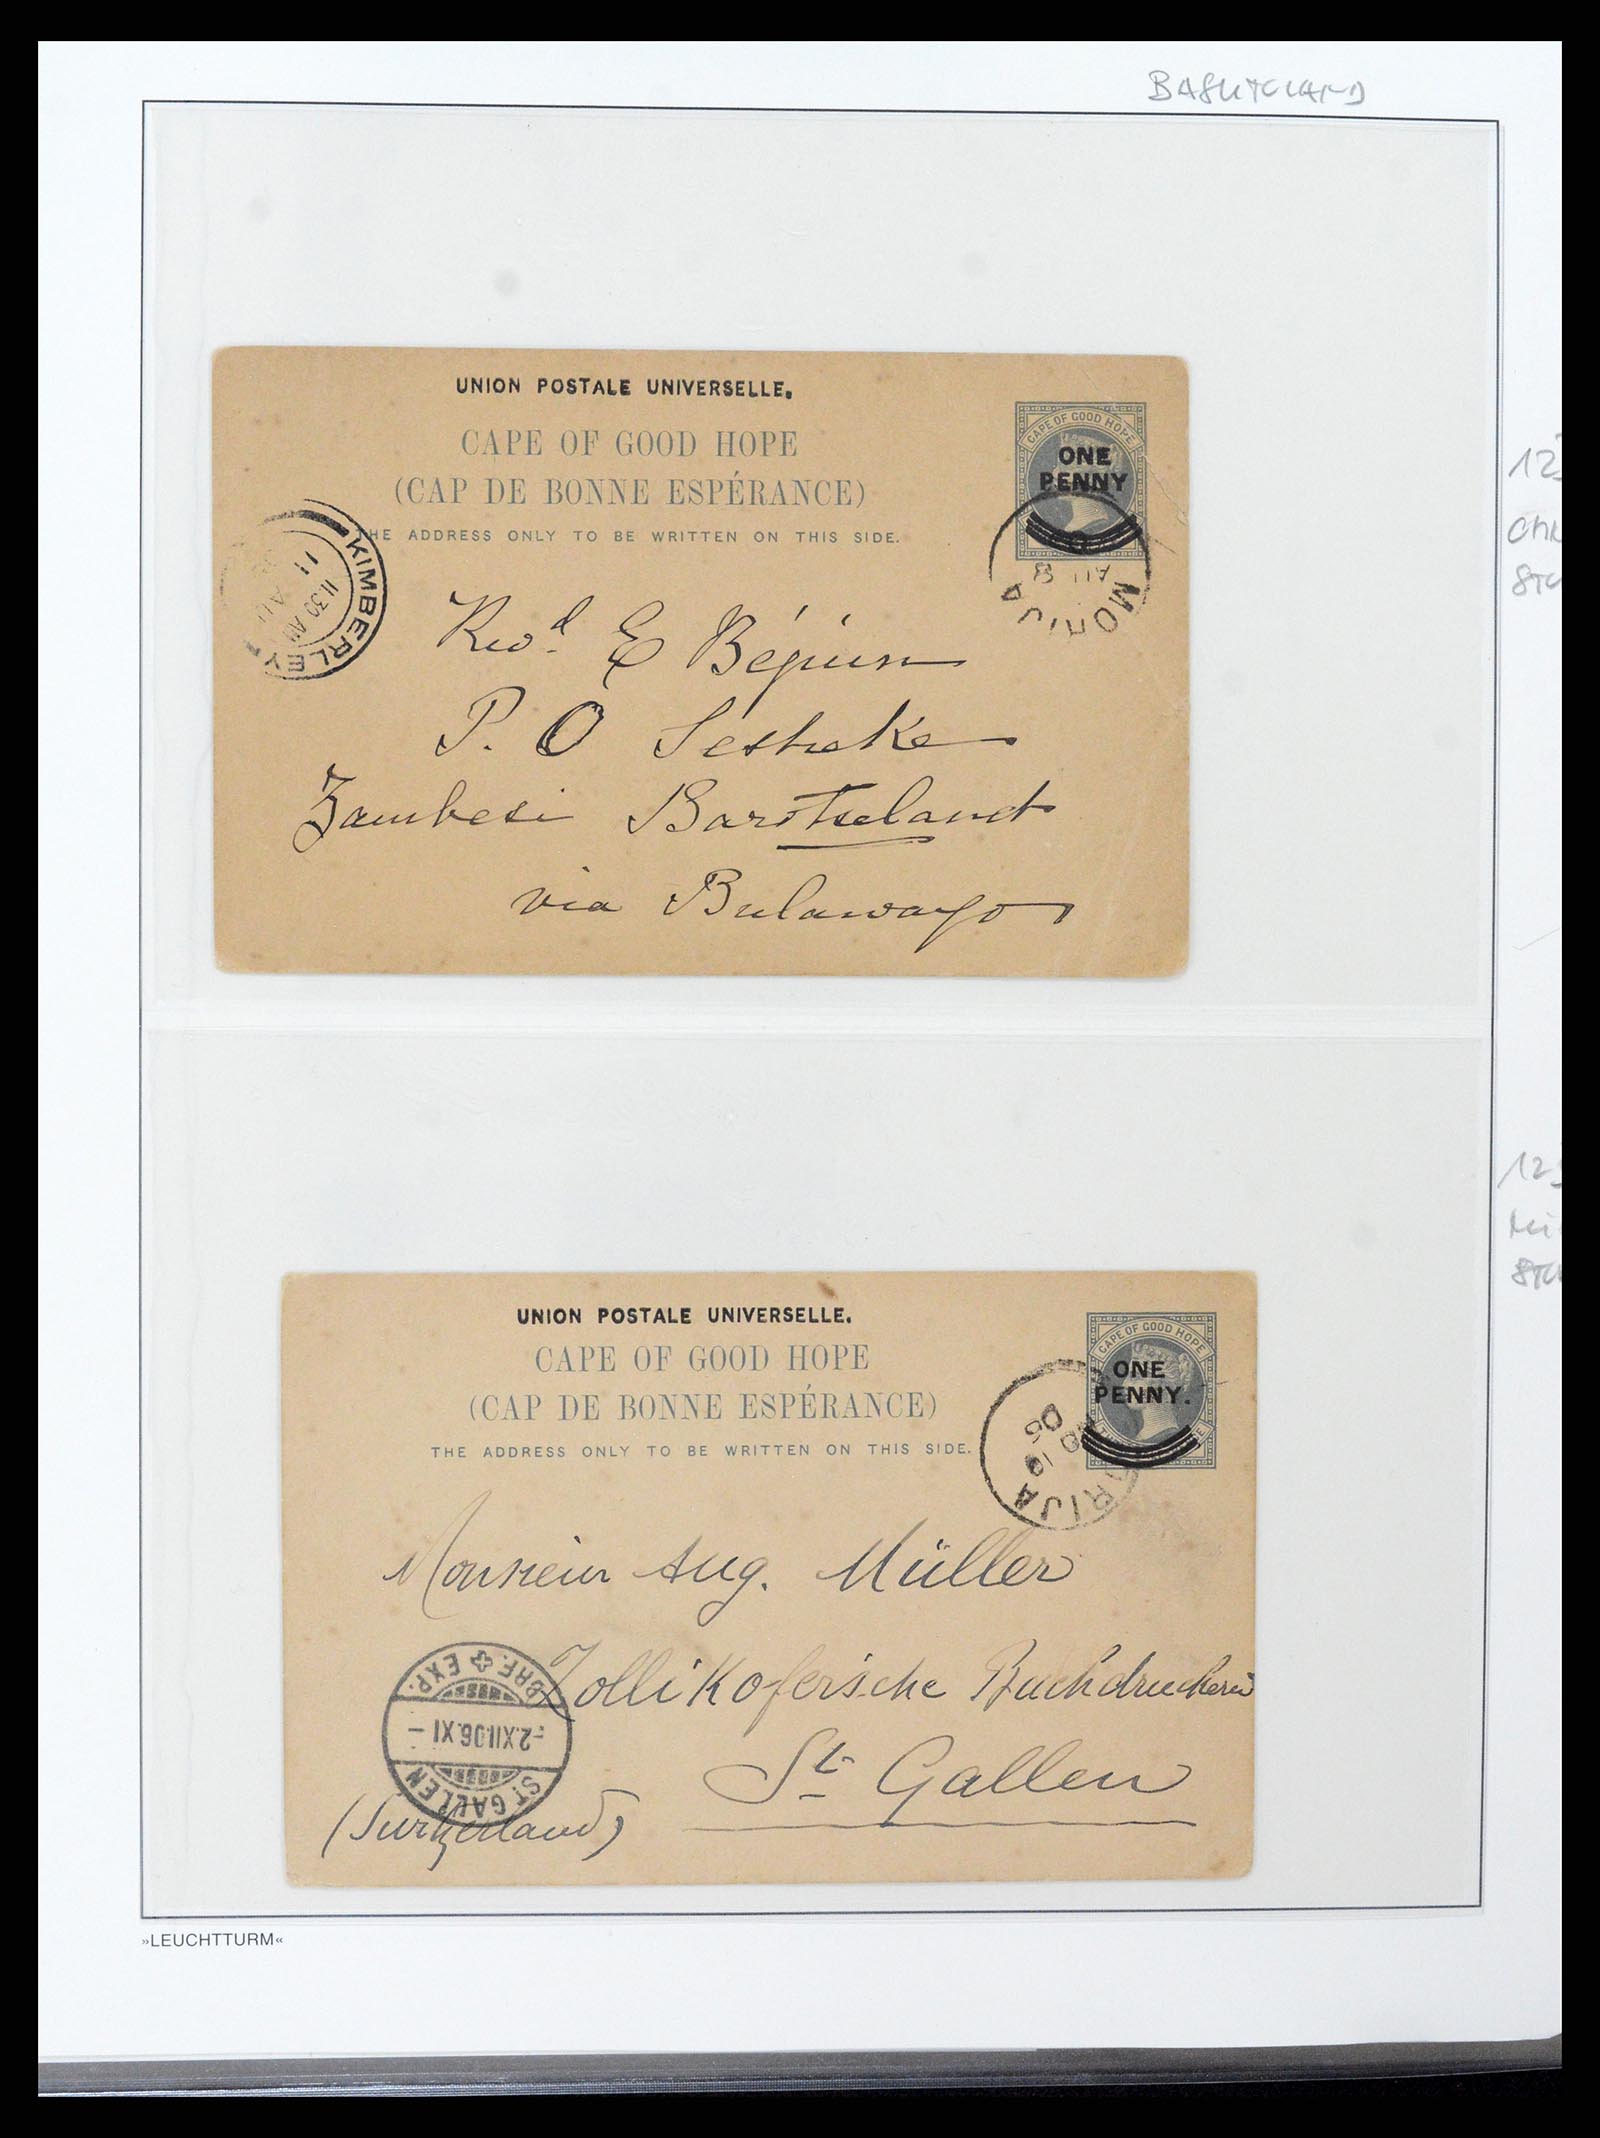 BASUTOLAND
UNION POSTALE UNIVERSELLE.
CAPE OF GOOD HOPE
(CAP DE BONNE ESPÉRANCE)
THE ADDRESS ONLY TO BE WRITTEN ON THIS SIDE.
CAPE OF GOOD HOPE
ONE
PENNY
MORIJA
AU 8
KIMBERLEY
11.30 AM
11
Revd. E Béguin
P. O Sesheke
Zambesi Barotseland
via Bulawayo
UNION POSTALE UNIVERSELLE.
CAPE OF GOOD HOPE
(CAP DE BONNE ESPÉRANCE)
THE ADDRESS ONLY TO BE WRITTEN ON THIS SIDE.
CAPE OF GOOD HOPE
ONE
PENNY.
RIJA
10
06
Monsieur Aug. Müller
Zollikofer'sche Buchdruckerei
St. Gallen
(Switzerland)
BRF. EXP.
-2.XII.06.XI-
ST. GALLEN
»LEUCHTTURM«